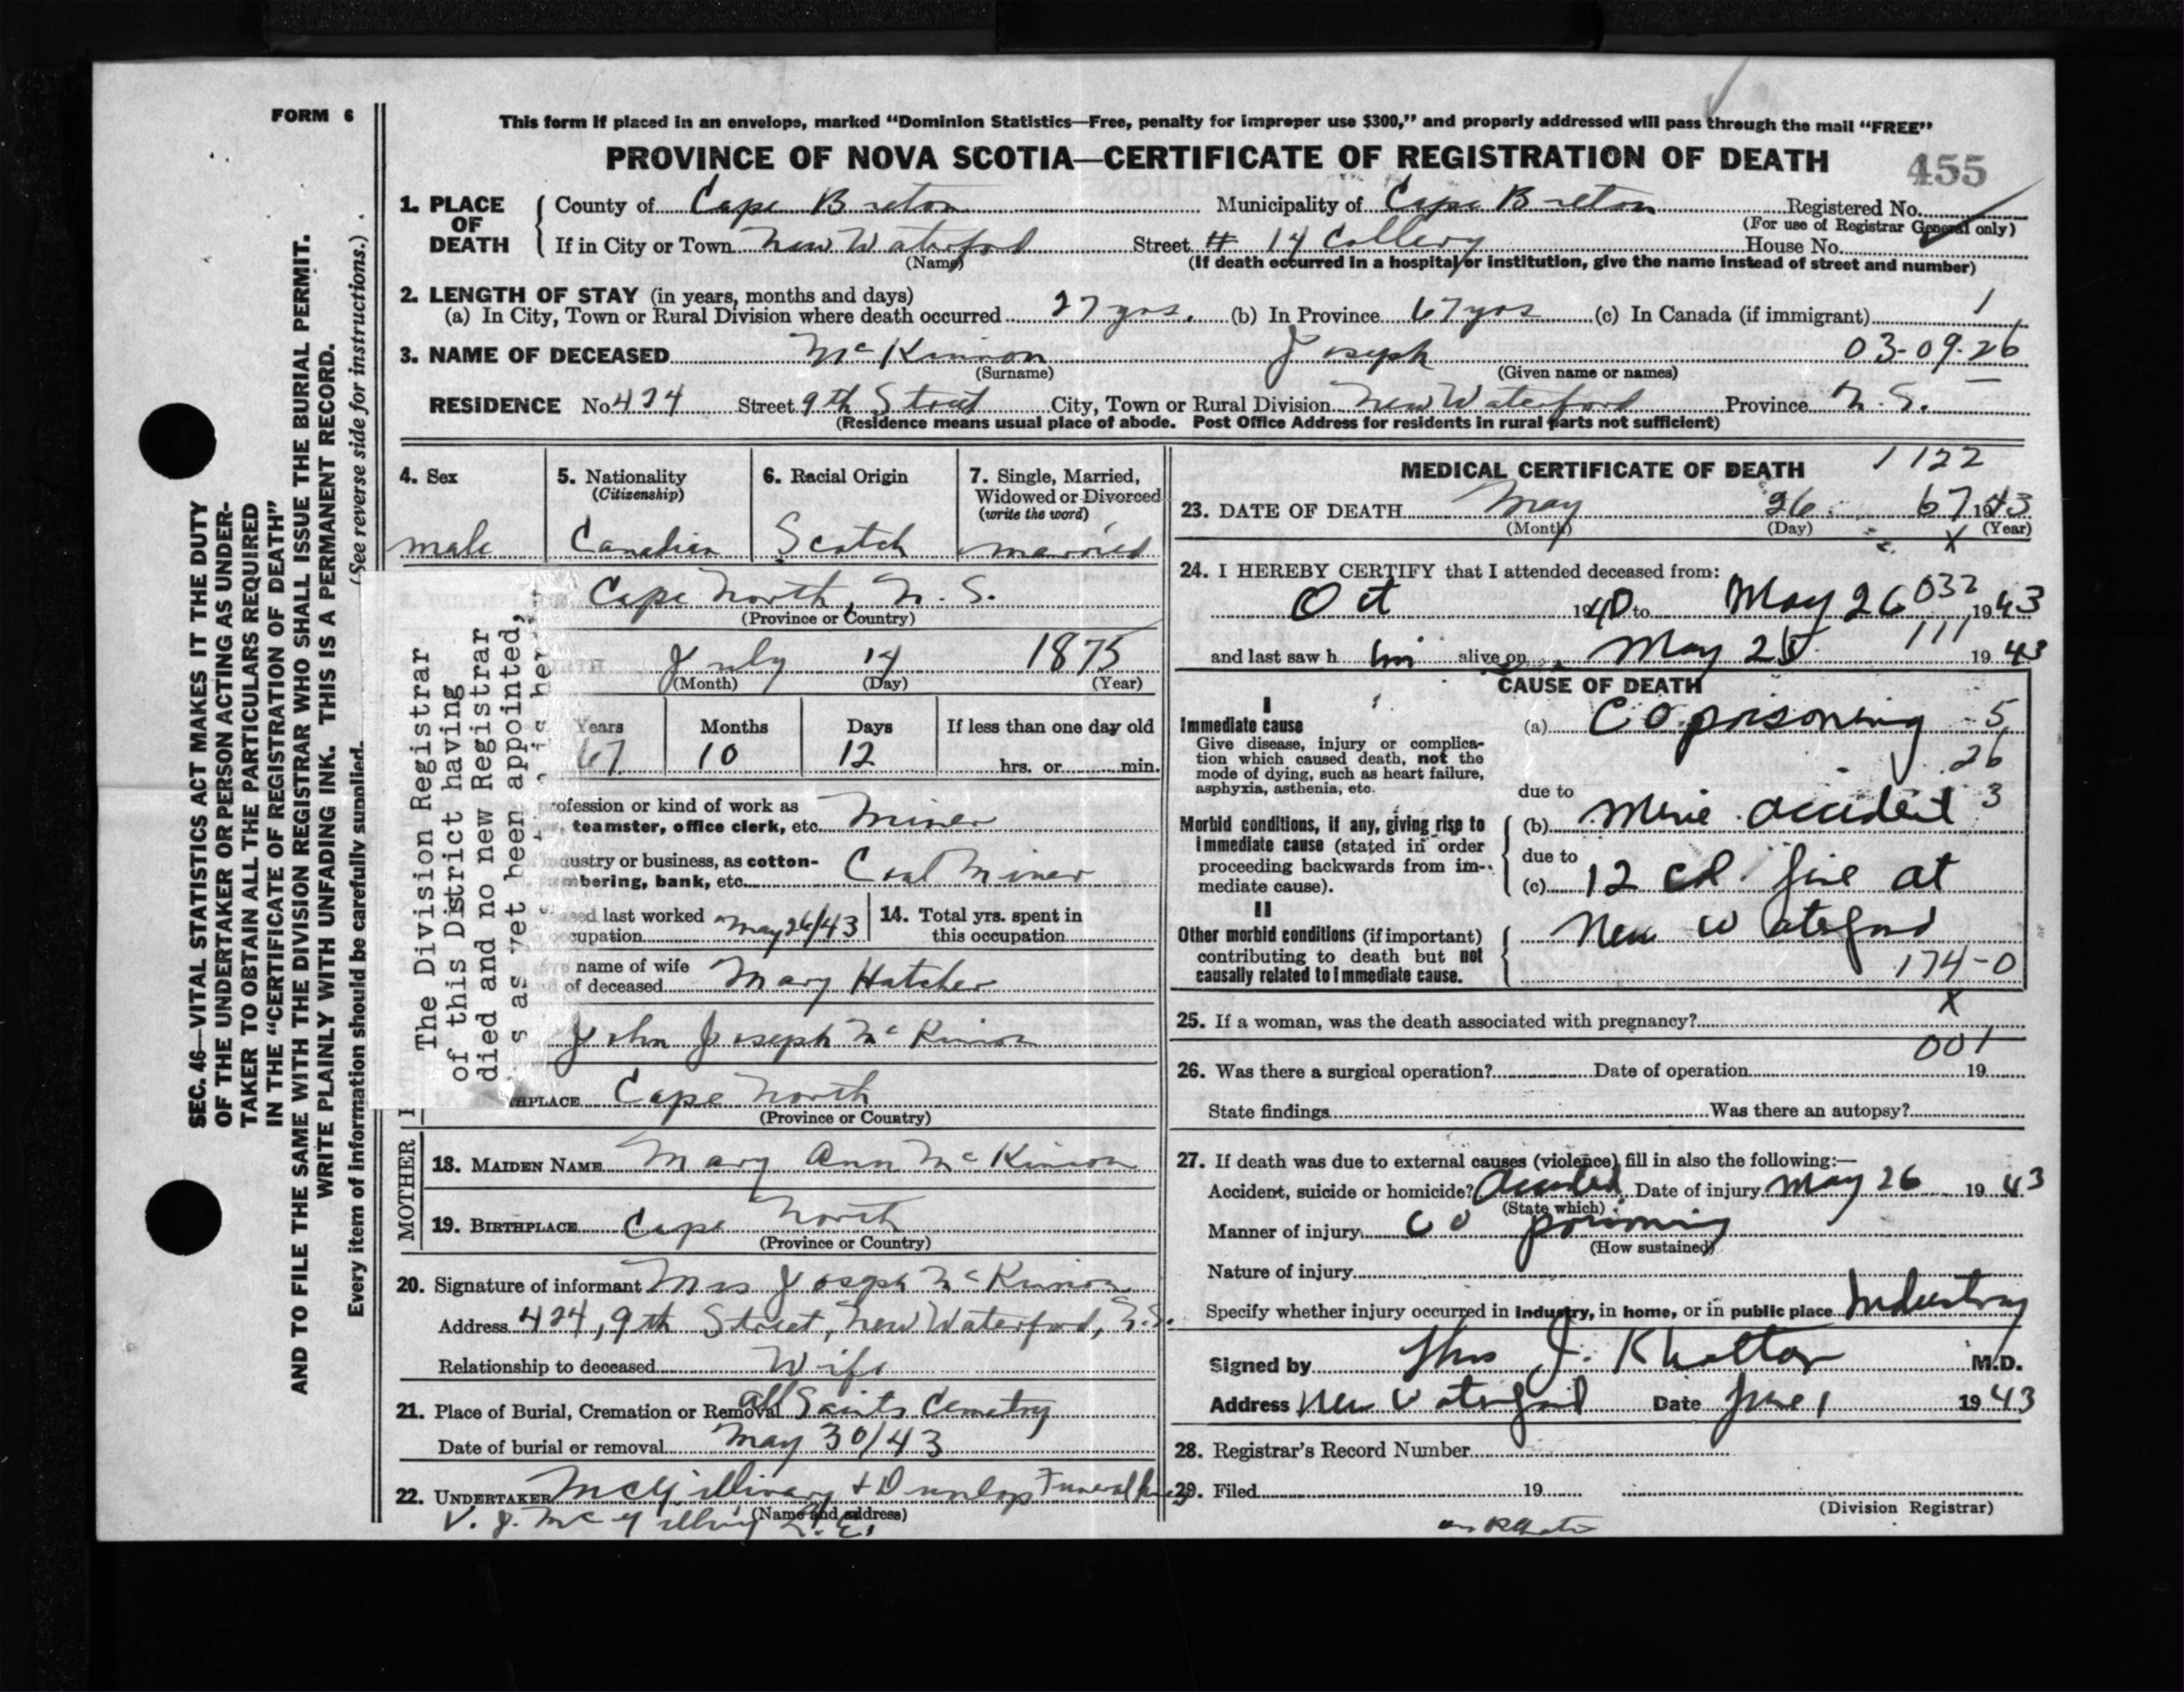 FORM 6
This form if placed in an envelope, marked "Dominion Statistics—Free, penalty for improper use $300," and properly addressed will pass through the mail "FREE"
PROVINCE OF NOVA SCOTIA—CERTIFICATE OF REGISTRATION OF DEATH
455
1. PLACE OF DEATH
County of Cape Breton Municipality of Cape Breton Registered No.
(For use of Registrar General only)
If in City or Town New Waterford Street # 14 Collery House No.
(Name) (If death occurred in a hospital or institution, give the name instead of street and number)
2. LENGTH OF STAY (in years, months and days)
(a) In City, Town or Rural Division where death occurred 27 yrs. (b) In Province 67 yrs (c) In Canada (if immigrant) 1
3. NAME OF DECEASED McKinnon Joseph 03-09-26
(Surname) (Given name or names)
RESIDENCE No. 434 Street 9th Street City, Town or Rural Division New Waterford Province N.S.
(Residence means usual place of abode. Post Office Address for residents in rural parts not sufficient)
4. Sex
male
5. Nationality
(Citizenship)
Canadian
6. Racial Origin
Scotch
7. Single, Married, Widowed or Divorced
(write the word)
married
Cape North, N.S.
(Province or Country)
July 14 1875
(Month) (Day) (Year)
Years Months Days If less than one day old
67 10 12 hrs. or min.
rofession or kind of work as
teamster, office clerk, etc. Miner
dustry or business, as cotton-
mbering, bank, etc. Coal Miner
sed last worked
ccupation May 26/43
14. Total yrs. spent in
this occupation
name of wife
of deceased Mary Hatcher
John Joseph McKinnon
HPLACE Cape North
(Province or Country)
MOTHER
18. MAIDEN NAME Mary Ann McKinnon
19. BIRTHPLACE Cape North
(Province or Country)
20. Signature of informant Mrs Joseph McKinnon
Address 434, 9th Street, New Waterford, N.S.
Relationship to deceased Wife
21. Place of Burial, Cremation or Removal All Saints Cemetry
Date of burial or removal May 30/43
22. UNDERTAKER McGillivary + Dunlop Funeral
(Name and address)
V. J. McGillivry
MEDICAL CERTIFICATE OF DEATH 1122
23. DATE OF DEATH May 26 67 1943
(Month) (Day) (Year)
X
24. I HEREBY CERTIFY that I attended deceased from:
Oct 1940 to May 26 032 1943
and last saw h im alive on May 25 111 1943
CAUSE OF DEATH
I
Immediate cause
Give disease, injury or complica-
tion which caused death, not the
mode of dying, such as heart failure,
asphyxia, asthenia, etc.
(a) CO poisoning 5
26
due to
Morbid conditions, if any, giving rise to
immediate cause (stated in order
proceeding backwards from im-
mediate cause).
(b) Mine accident 3
due to
(c) 12 cl. fire at
II
Other morbid conditions (if important)
contributing to death but not
causally related to immediate cause.
New Waterford
174-0
X
25. If a woman, was the death associated with pregnancy?
001
26. Was there a surgical operation? Date of operation 19
State findings Was there an autopsy?
27. If death was due to external causes (violence) fill in also the following:—
Accident, suicide or homicide? Accident Date of injury May 26 1943
(State which)
Manner of injury CO poisoning
(How sustained)
Nature of injury
Specify whether injury occurred in industry, in home, or in public place Industry
Signed by Thos J. Khattar M.D.
Address New Waterford Date June 1 1943
28. Registrar's Record Number
29. Filed 19
(Division Registrar)
SEC. 46—VITAL STATISTICS ACT MAKES IT THE DUTY
OF THE UNDERTAKER OR PERSON ACTING AS UNDER-
TAKER TO OBTAIN ALL THE PARTICULARS REQUIRED
IN THE "CERTIFICATE OF REGISTRATION OF DEATH"
AND TO FILE THE SAME WITH THE DIVISION REGISTRAR WHO SHALL ISSUE THE BURIAL PERMIT.
WRITE PLAINLY WITH UNFADING INK. THIS IS A PERMANENT RECORD.
Every item of information should be carefully supplied. (See reverse side for instructions.)
The Division Registrar
of this District having
died and no new Registrar
s as yet been appointed,
is her